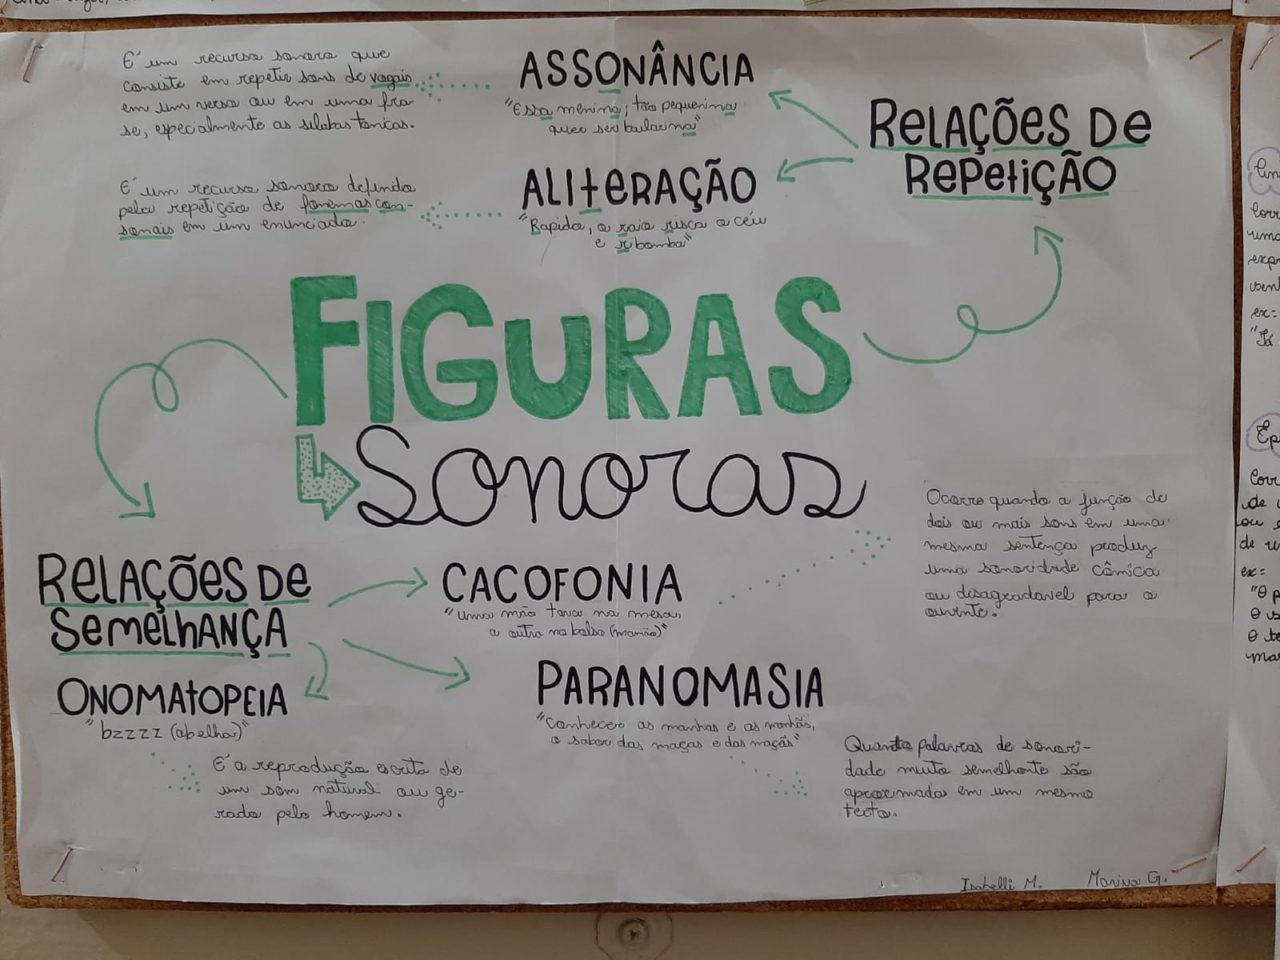 É um recurso sonoro que
consiste em repetir sons de vogais
em um verso ou em uma fra
se, especialmente as sílabas tônicas.
ASSONÂNCIA
"Essa menina; tão pequenina
quer ser bailarina"
RELAÇÕES DE
REPETIÇÃO
É um recurso sonoro definido
pela repetição de fonemas con-
sonais em um enunciado.
ALITERAÇÃO
"Rapido, o raio risca o céu
e ribomba"
FIGURAS
Sonoras
RELAÇÕES DE
SEMELHANÇA
CACOFONIA
"uma mão tava na mesa,
a outra no bolso (mamão)"
Ocorre quando a junção de
dois ou mais sons em uma
mesma sentença produz
uma sonoridade cômica
ou desagradável para o
ouvinte.
ONOMATOPEIA
"bzzzz (abelha)"
É a reprodução escrita de
um som natural ou ge-
rado pelo homem.
PARANOMASIA
"Conhecer as manhas e as manhãs,
o sabor das maças e das maçãs"
Quando palavras de sonori-
dade muito semelhante são
aproximada em um mesmo
texto.
Isabelli M. Marina G.